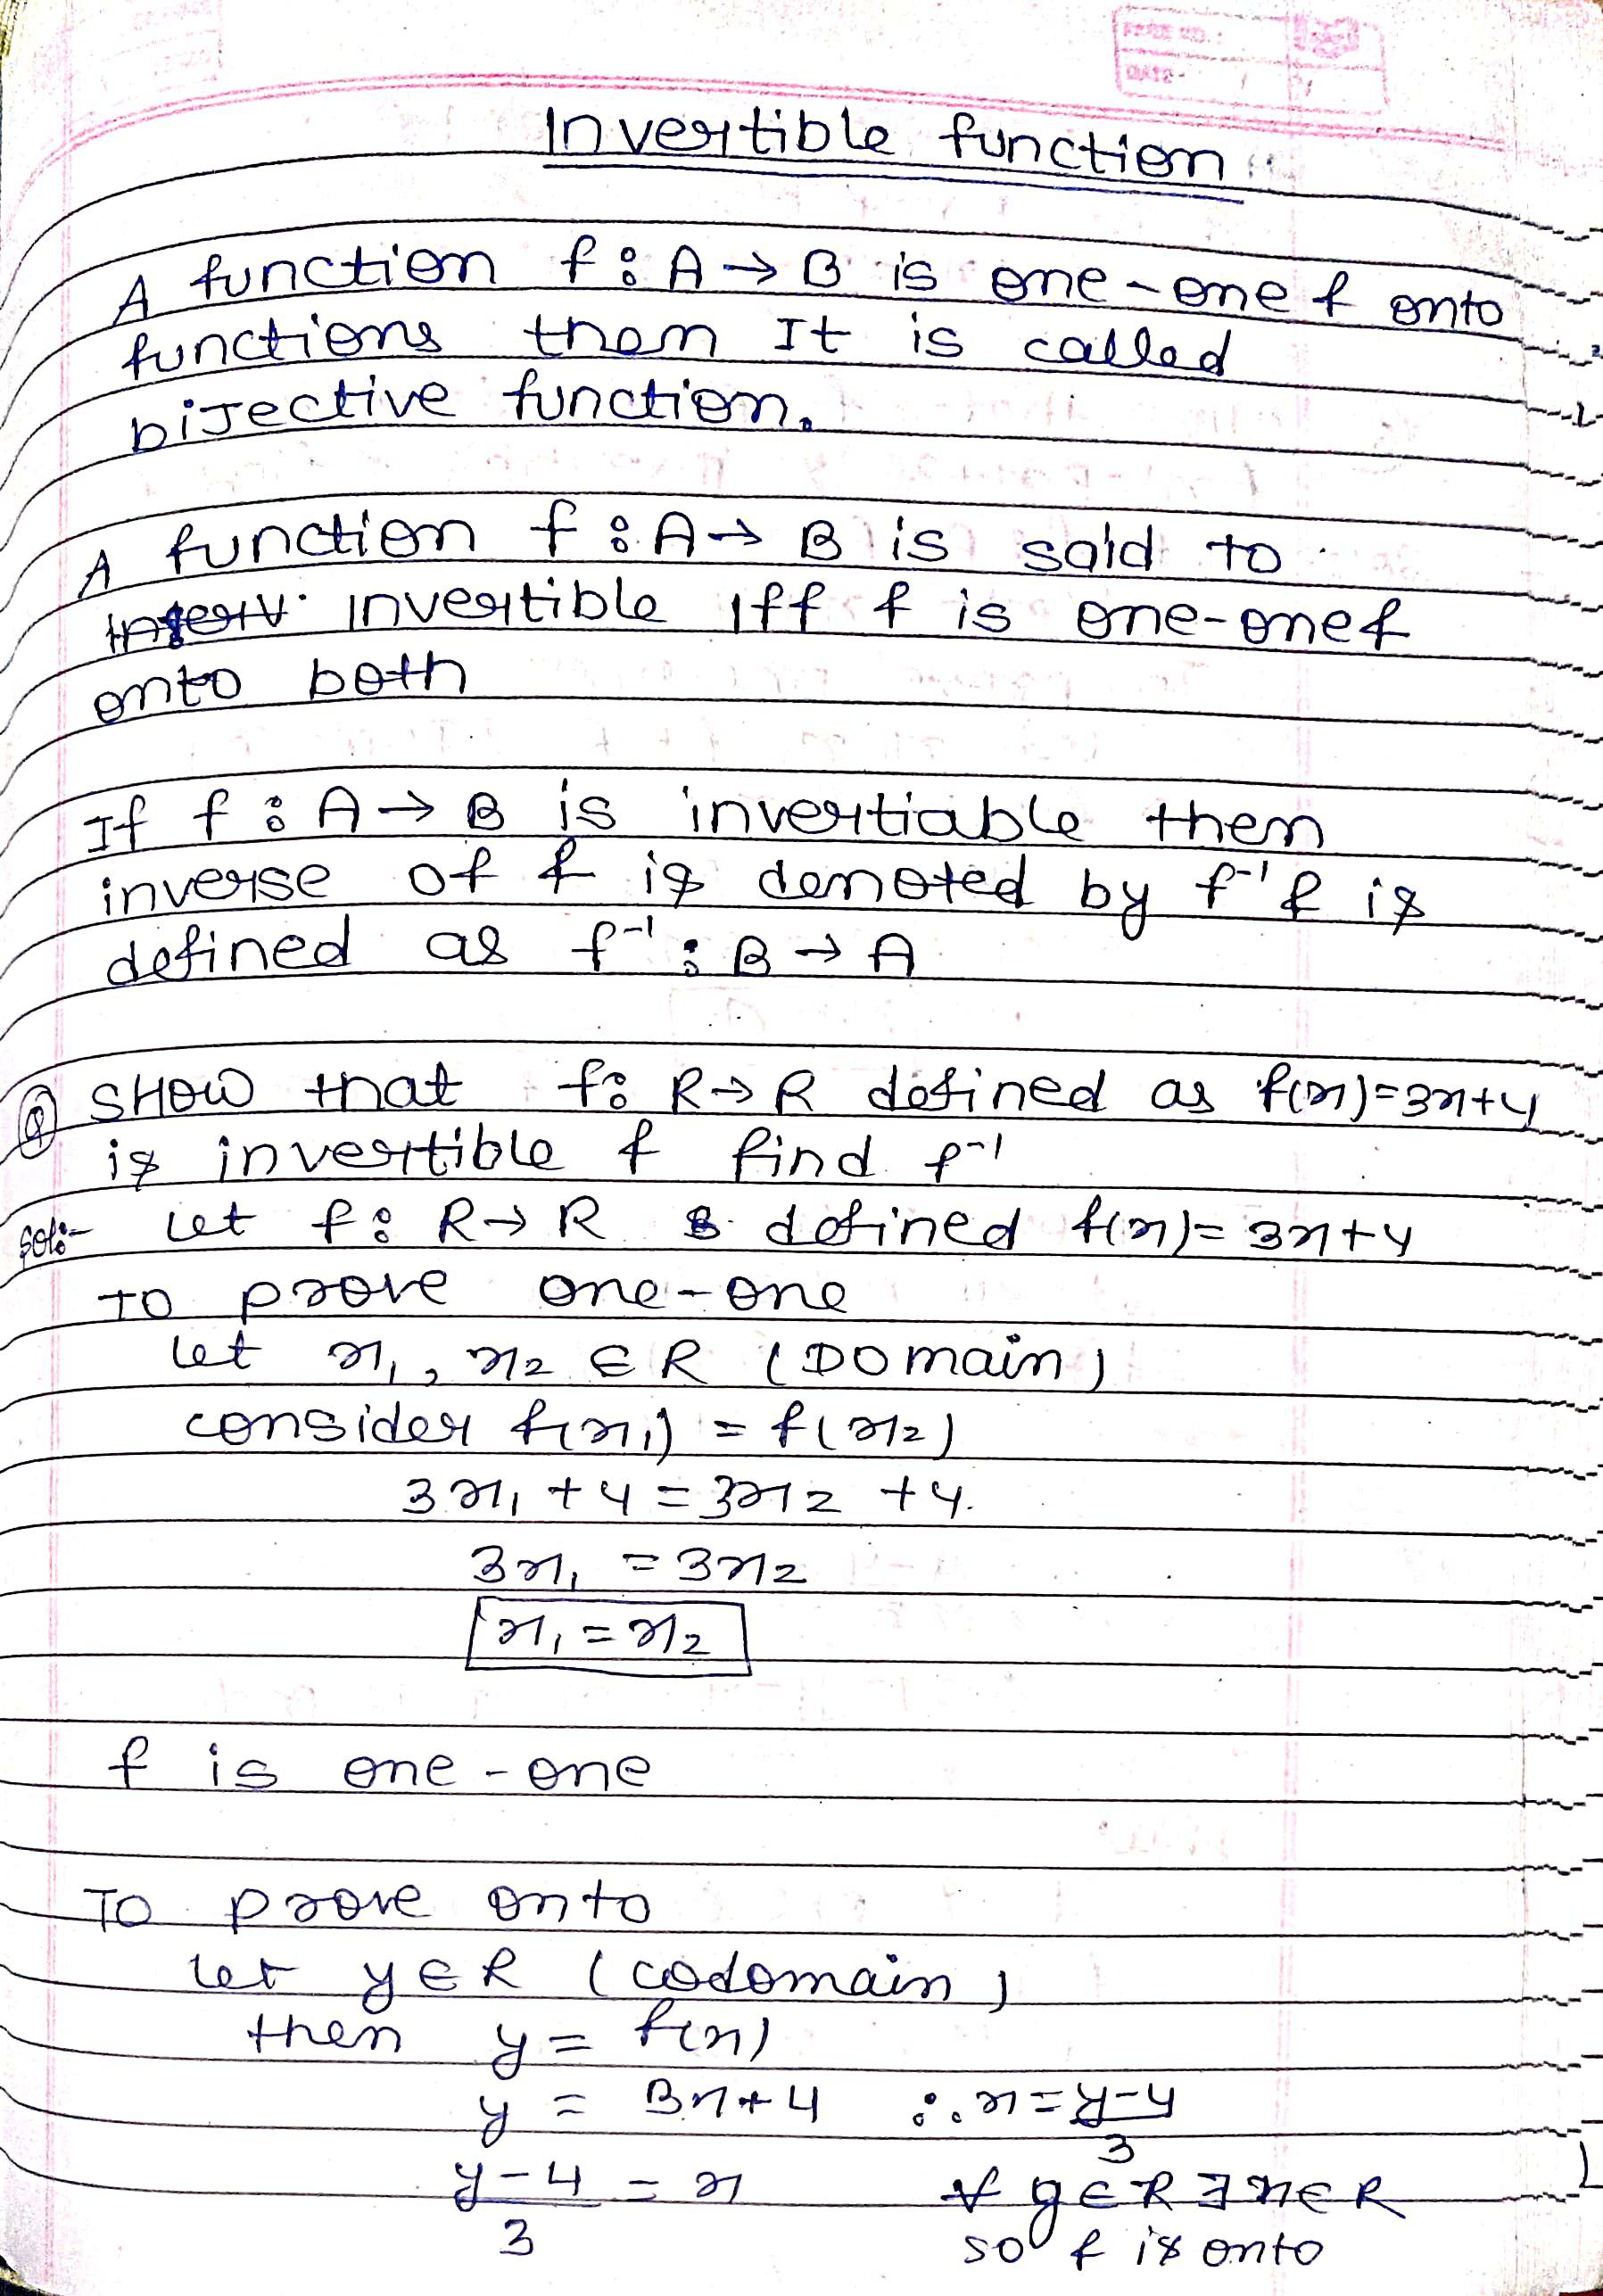 PAGE NO.:
DATE -
Invertible function
A function f : A → B is one-one & onto
functions then It is called
bijective function.
A function f : A → B is said to
invertible iff f is one-one &
onto both
If f : A → B is invertiable then
inverse of f is denoted by f⁻¹ & is
defined as f⁻¹ : B → A
Q Show that f: R → R defined as f(x)=3x+4
is invertible & find f⁻¹
Sol:- Let f : R → R defined f(x)= 3x+4
To prove one-one
Let x₁, x₂ ∈ R (Domain)
consider f(x₁) = f(x₂)
3x₁ + 4 = 3x₂ + 4.
3x₁ = 3x₂
x₁ = x₂
f is one-one
To prove onto
Let y ∈ R (codomain)
then y = f(x)
y = 3x+4 ∴ x = y-4/3
y-4/3 = x ∀ y ∈ R ∃ x ∈ R
so f is onto